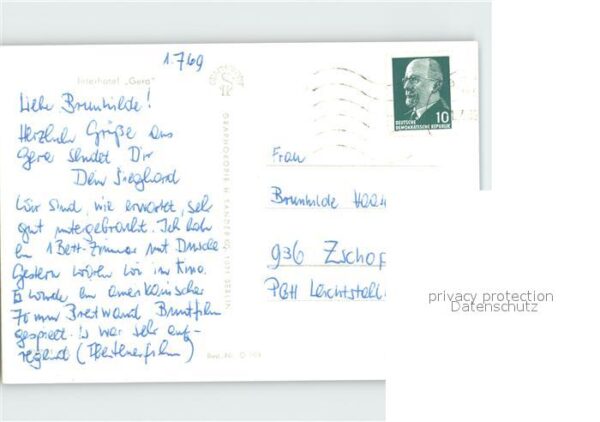 1.7.69
Interhotel „Gera"
Liebe Brunhilde!
Herzliche Grüße aus
Gera sendet Dir
Dein Sieghard
Wir sind, wie erwartet, sehr
gut untergebracht. Ich hab
ein 1 Bett-Zimmer mit Dusche
Gestern waren wir im Kino.
Es wurde ein amerikanischer
70 mm Breitwand Buntfilm
gespielt. Es war sehr auf-
regend (Abenteuerfilm)
Best.-Nr. G
GRAPHOKOPIE H. SANDER KG, 1071 BERLIN
10
DEUTSCHE
DEMOKRATISCHE REPUBLIK
Frau
Brunhilde
936 Zschop
PGH Leichtstahl
privacy protection
Datenschutz